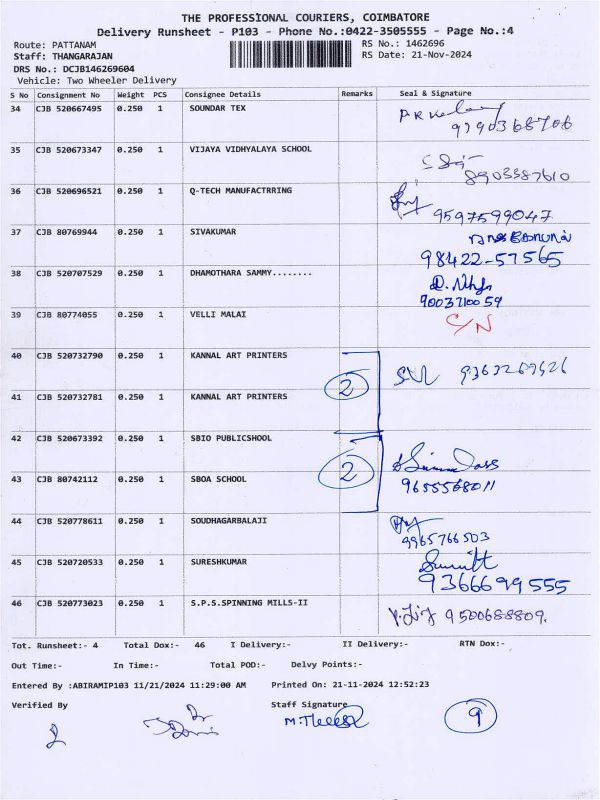 THE PROFESSIONAL COURIERS, COIMBATORE
Delivery Runsheet - P103 - Phone No.:0422-3505555 - Page No.:4
Route: PATTANAM RS No.: 1462696
Staff: THANGARAJAN RS Date: 21-Nov-2024
DRS No.: DCJB146269604
Vehicle: Two Wheeler Delivery
S No Consignment No Weight PCS Consignee Details Remarks Seal & Signature
34 CJB 520667495 0.250 1 SOUNDAR TEX
35 CJB 520673347 0.250 1 VIJAYA VIDHYALAYA SCHOOL
8903387610
36 CJB 520696521 0.250 1 Q-TECH MANUFACTRRING
9597599047
37 CJB 80769944 0.250 1 SIVAKUMAR
98422-57565
38 CJB 520707529 0.250 1 DHAMOTHARA SAMMY........
9003710059
39 CJB 80774055 0.250 1 VELLI MALAI C/N
40 CJB 520732790 0.250 1 KANNAL ART PRINTERS
2
41 CJB 520732781 0.250 1 KANNAL ART PRINTERS
42 CJB 520673392 0.250 1 SBIO PUBLICSCHOOL
2
43 CJB 80742112 0.250 1 SBOA SCHOOL 9655568011
44 CJB 520778611 0.250 1 SOUDHAGARBALAJI
9965766503
45 CJB 520720533 0.250 1 SURESHKUMAR
9366699555
46 CJB 520773023 0.250 1 S.P.S.SPINNING MILLS-II 9500688809.
Tot. Runsheet:- 4 Total Dox:- 46 I Delivery:- II Delivery:- RTN Dox:-
Out Time:- In Time:- Total POD:- Delvy Points:-
Entered By :ABIRAMIP103 11/21/2024 11:29:00 AM Printed On: 21-11-2024 12:52:23
Verified By Staff Signature
9